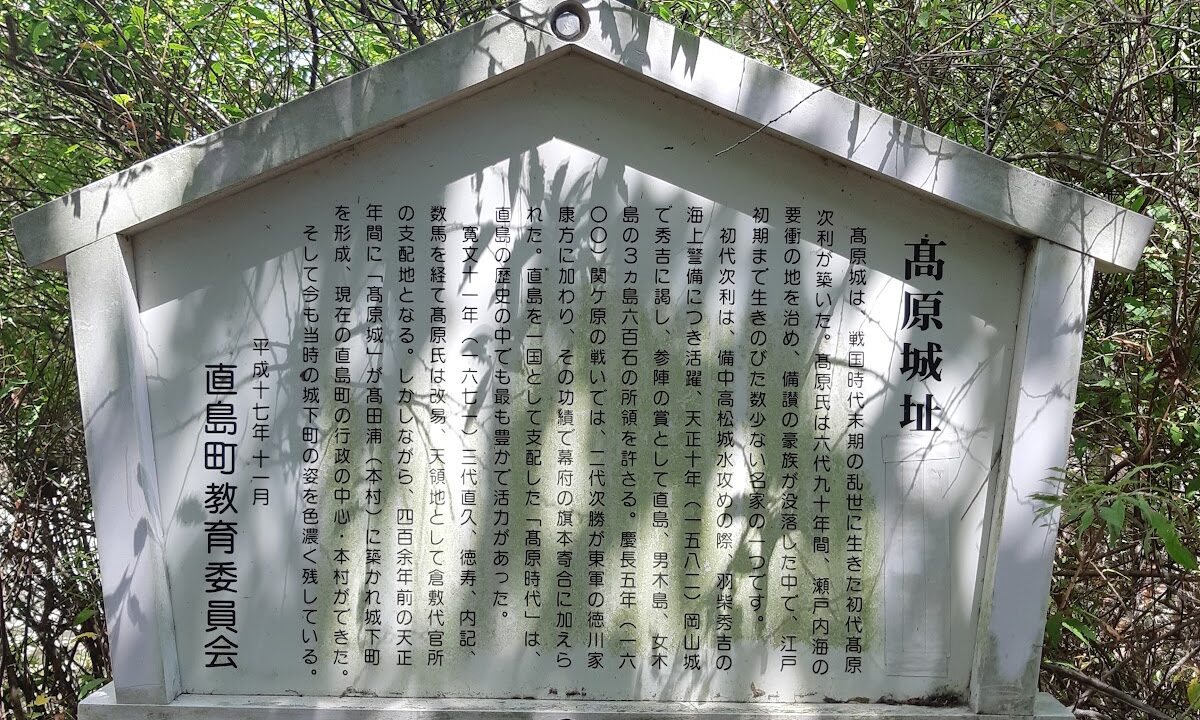 髙原城址
髙原城は、戦国時代末期の乱世に生きた初代髙原
次利が築いた。髙原氏は六代九十年間、瀬戸内海の
要衝の地を治め、備讃の豪族が没落した中で、江戸
初期まで生きのびた数少ない名家の一つです。
初代次利は、備中高松城水攻めの際、羽柴秀吉の
海上警備につき活躍、天正十年（一五八二）岡山城
で秀吉に謁し、参陣の賞として直島、男木島、女木
島の３ヵ島六百石の所領を許さる。慶長五年（一六
〇〇）関ケ原の戦いでは、二代次勝が東軍の徳川家
康方に加わり、その功績で幕府の旗本寄合に加えら
れた。直島を一国として支配した「髙原時代」は、
直島の歴史の中でも最も豊かで活力があった。
寛文十一年（一六七一）三代直久、徳寿、内記、
数馬を経て髙原氏は改易、天領地として倉敷代官所
の支配地となる。しかしながら、四百余年前の天正
年間に「髙原城」が髙田浦（本村）に築かれ城下町
を形成、現在の直島町の行政の中心・本村ができた。
そして今も当時の城下町の姿を色濃く残している。
平成十七年十一月
直島町教育委員会